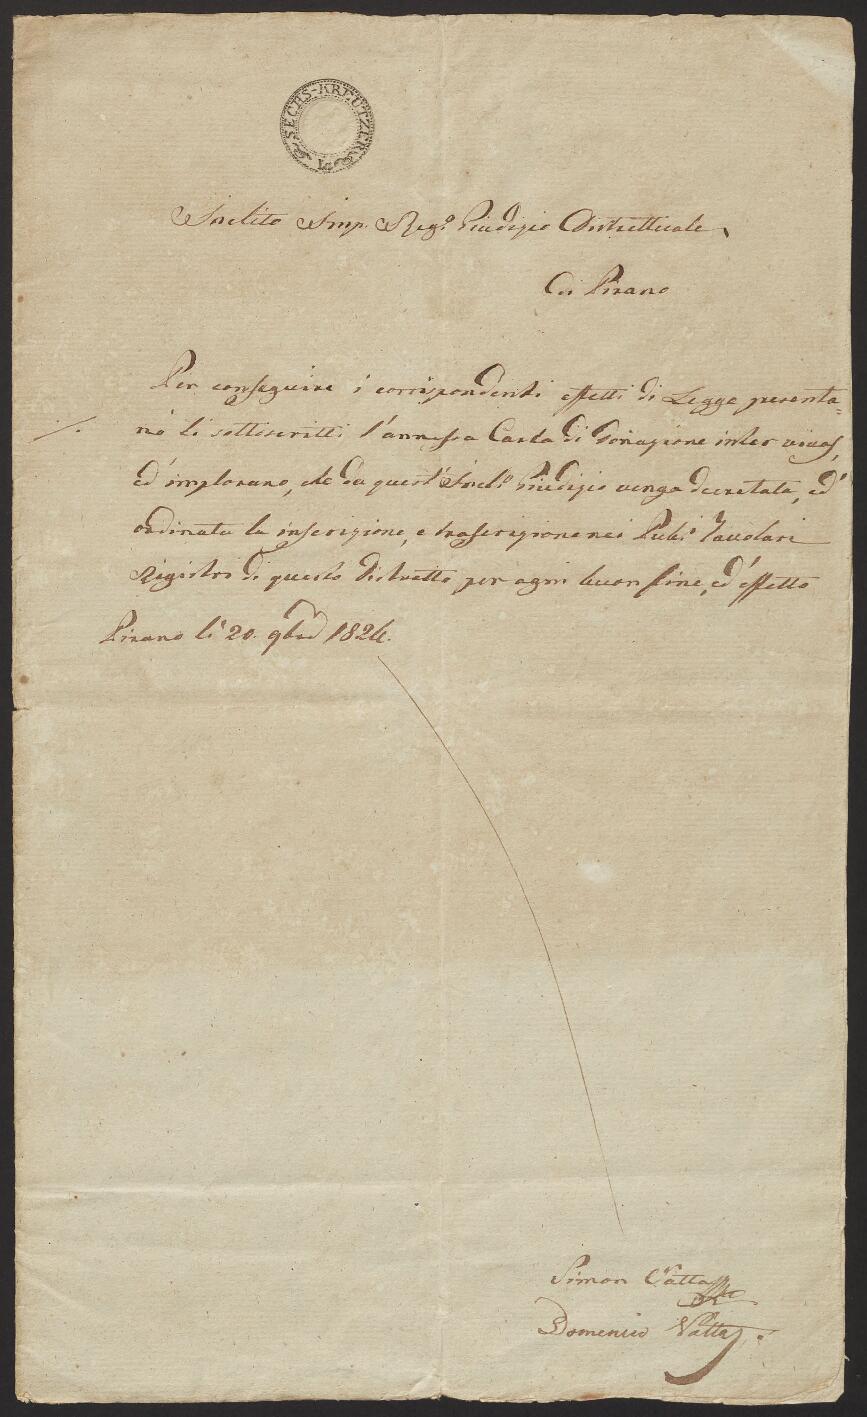 SECHS-KREUTZER
Inclito Imp. Reg.º Giudizio Distrettuale
Di Pirano
Per conseguire i corrispondenti effetti di Legge presenta=
no li sottoscritti l'annessa Carta di Donazione inter vivos,
ed' implorano, che da quest' Incl.º Giudizio venga decretata, ed'
ordinata la inscrizione, e trascrizione nei Pubi. Tavolari
Registri di questo Distretto per ogni buon fine, ed' effetto
Pirano li 20. 9bre 1824.
Simon Vatta
Domenico Vatta